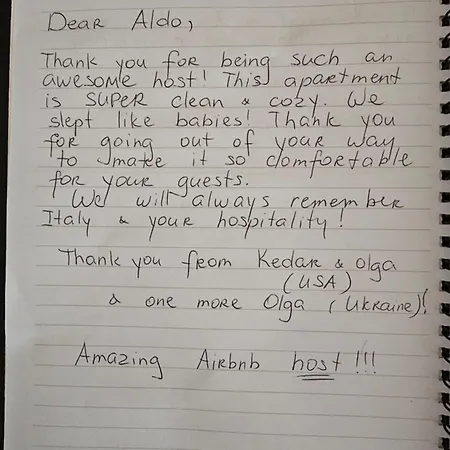 Dear Aldo,
Thank you for being such an
awesome host! This apartment
is super clean & cozy. We
slept like babies! Thank you
for going out of your way
to make it so comfortable
for your guests.
We will always remember
Italy & your hospitality!
Thank you from Kedar & Olga
(USA)
& one more Olga (Ukraine)!
Amazing Airbnb host!!!